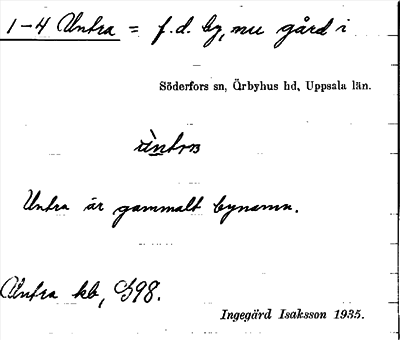 1-4 Untra = f.d. by, nu gård i
Söderfors sn, Örbyhus hd, Uppsala län.
Untra är gammalt bynamn.
Untra kb, S98.
Ingegärd Isaksson 1935.